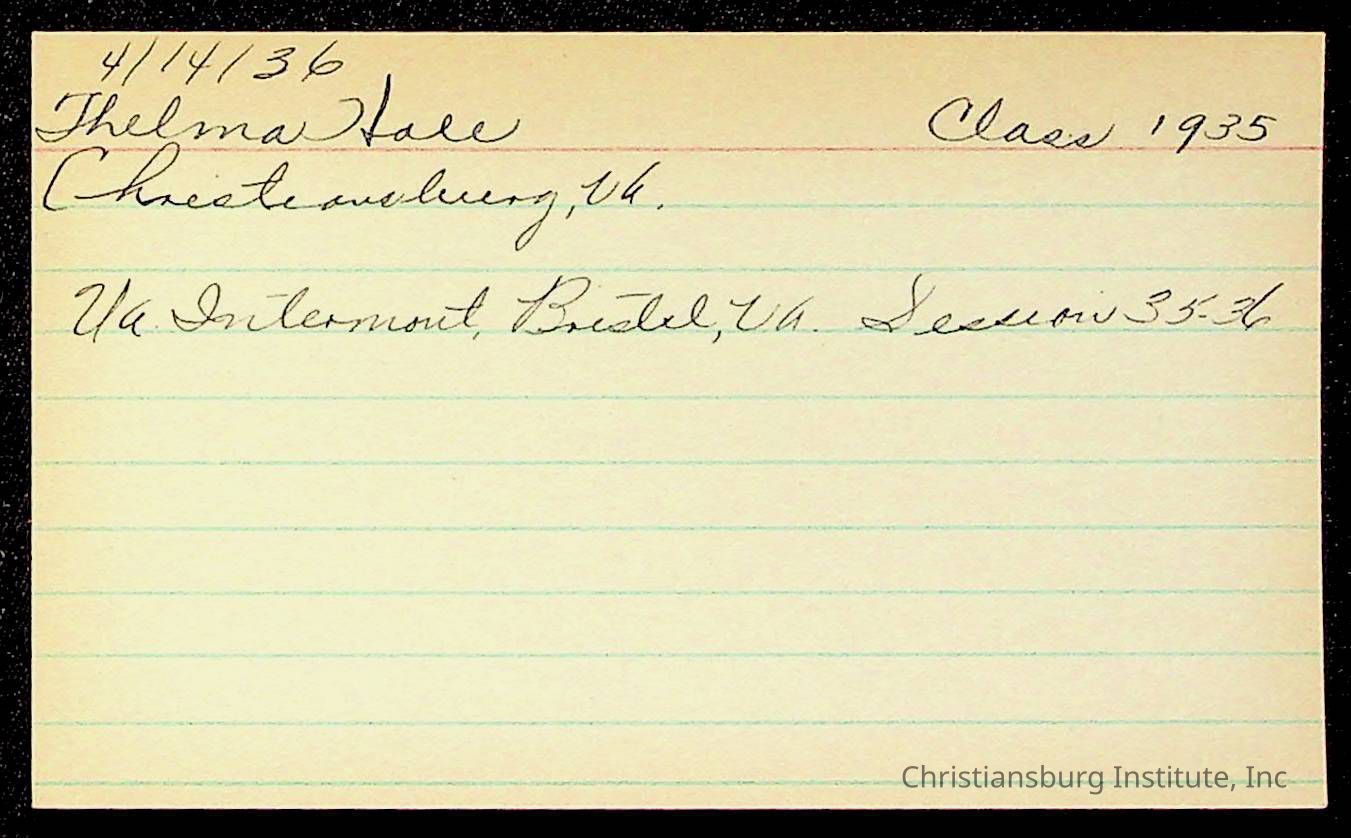 4/14/36
Thelma Hale Class 1935
Christiansburg, Va.
Va. Intermont, Bristol, Va. Session 35-36
Christiansburg Institute, Inc